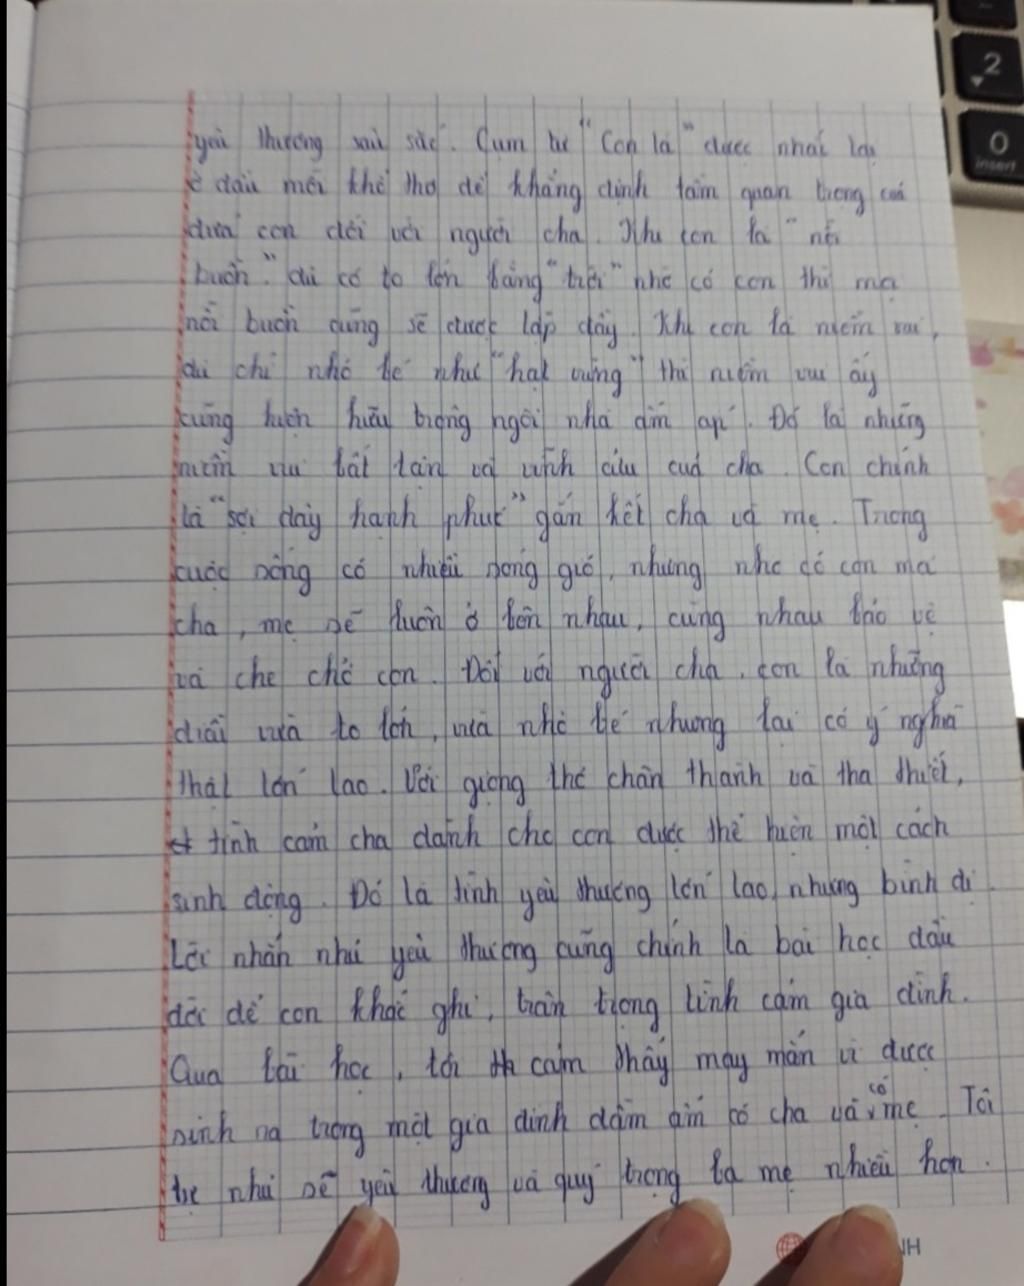 yêu thương sâu sắc. Cụm từ "Con là" được nhắc lại
ở đầu mỗi khổ thơ để khẳng định tầm quan trọng của
đứa con đối với người cha. Khi con là "nỗi
buồn" dù có to lớn bằng "trời" nhờ có con thì mọi
nỗi buồn cũng sẽ được lấp đầy. Khi con là niềm vui,
dù chỉ nhỏ bé như "hạt vừng" thì niềm vui ấy
cũng hiện hữu trong ngôi nhà ấm áp. Đó là những
niềm vui bất tận và vĩnh cửu của cha. Con chính
là "sợi dây hạnh phúc" gắn kết cha và mẹ. Trong
cuộc sống có nhiều sóng gió, nhưng nhờ có con mà
cha, mẹ sẽ luôn ở bên nhau, cùng nhau bảo vệ
và che chở con. Đối với người cha, con là những
điều vừa to lớn, vừa nhỏ bé nhưng lại có ý nghĩa
thật lớn lao. Với giọng thơ chân thành và tha thiết,
tình cảm cha dành cho con được thể hiện một cách
sinh động. Đó là tình yêu thương lớn lao, nhưng bình dị.
Lời nhắn nhủ yêu thương cũng chính là bài học đầu
đời để con khắc ghi, trân trọng tình cảm gia đình.
Qua bài học, tôi cảm thấy may mắn vì được
sinh ra trong một gia đình đầm ấm có cha và có mẹ. Tôi
tự nhủ sẽ yêu thương và quý trọng ba mẹ nhiều hơn.
2
0
insert
NH